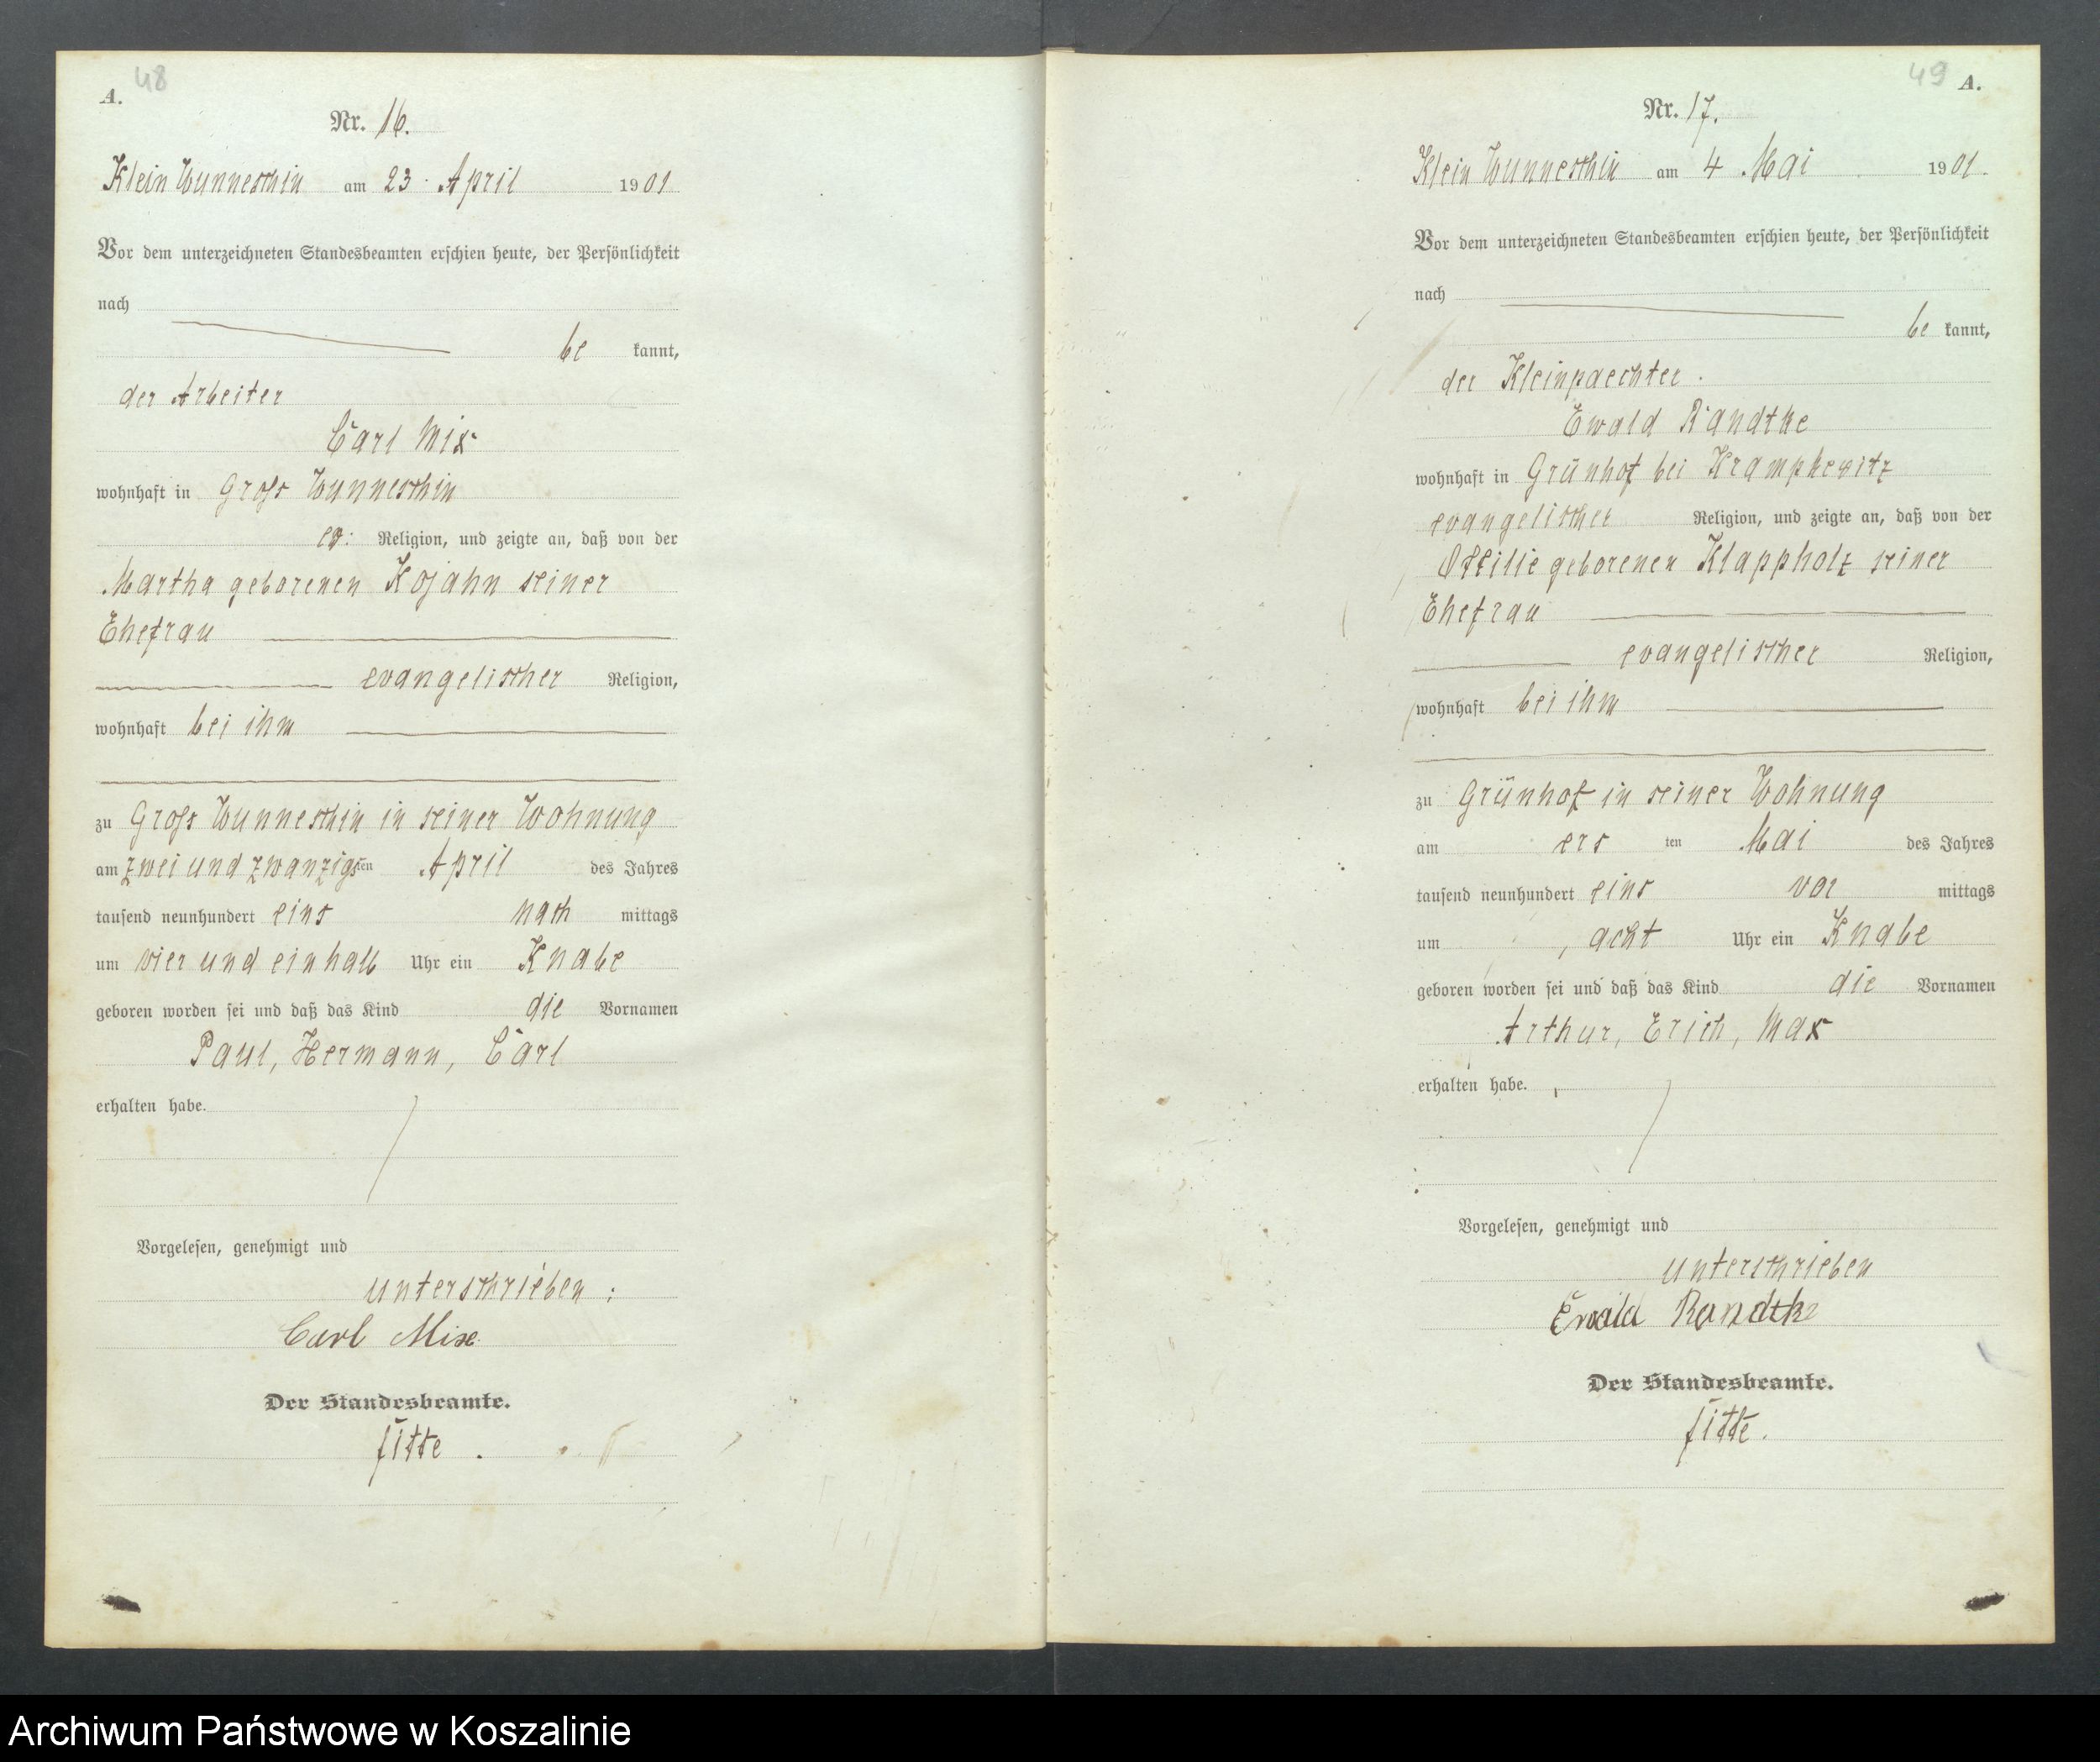 A. 48
Nr. 16.
Klein Wunneschin am 23. April 1901
Vor dem unterzeichneten Standesbeamten erschien heute, der Persönlichkeit
nach
be kannt,
der Arbeiter
Carl Mix
wohnhaft in Gross Wunneschin
ev: Religion, und zeigte an, daß von der
Martha geborenen Kojahn seiner
Ehefrau
evangelischer Religion,
wohnhaft bei ihm
zu Gross Wunneschin in seiner Wohnung
am zwei und zwanzigsten April des Jahres
tausend neunhundert eins nach mittags
um vier und einhalb Uhr ein Knabe
geboren worden sei und daß das Kind die Vornamen
Paul, Hermann, Carl
erhalten habe.
Vorgelesen, genehmigt und
unterschrieben:
Carl Mix
Der Standesbeamte.
Fitte.
49 A.
Nr. 17.
Klein Wunneschin am 4 Mai 1901.
Vor dem unterzeichneten Standesbeamten erschien heute, der Persönlichkeit
nach
be kannt,
der Kleinpaechter.
Ewald Randtke
wohnhaft in Grünhof bei Krampkewitz
evangelischer Religion, und zeigte an, daß von der
Ottilie geborenen Klappholz seiner
Ehefrau
evangelischer Religion,
wohnhaft bei ihm
zu Grünhof in seiner Wohnung
am ers ten Mai des Jahres
tausend neunhundert eins vor mittags
um acht Uhr ein Knabe
geboren worden sei und daß das Kind die Vornamen
Arthur, Erich, Max
erhalten habe.
Vorgelesen, genehmigt und
unterschrieben
Ewald Randtke
Der Standesbeamte.
Fitte.
Archiwum Państwowe w Koszalinie